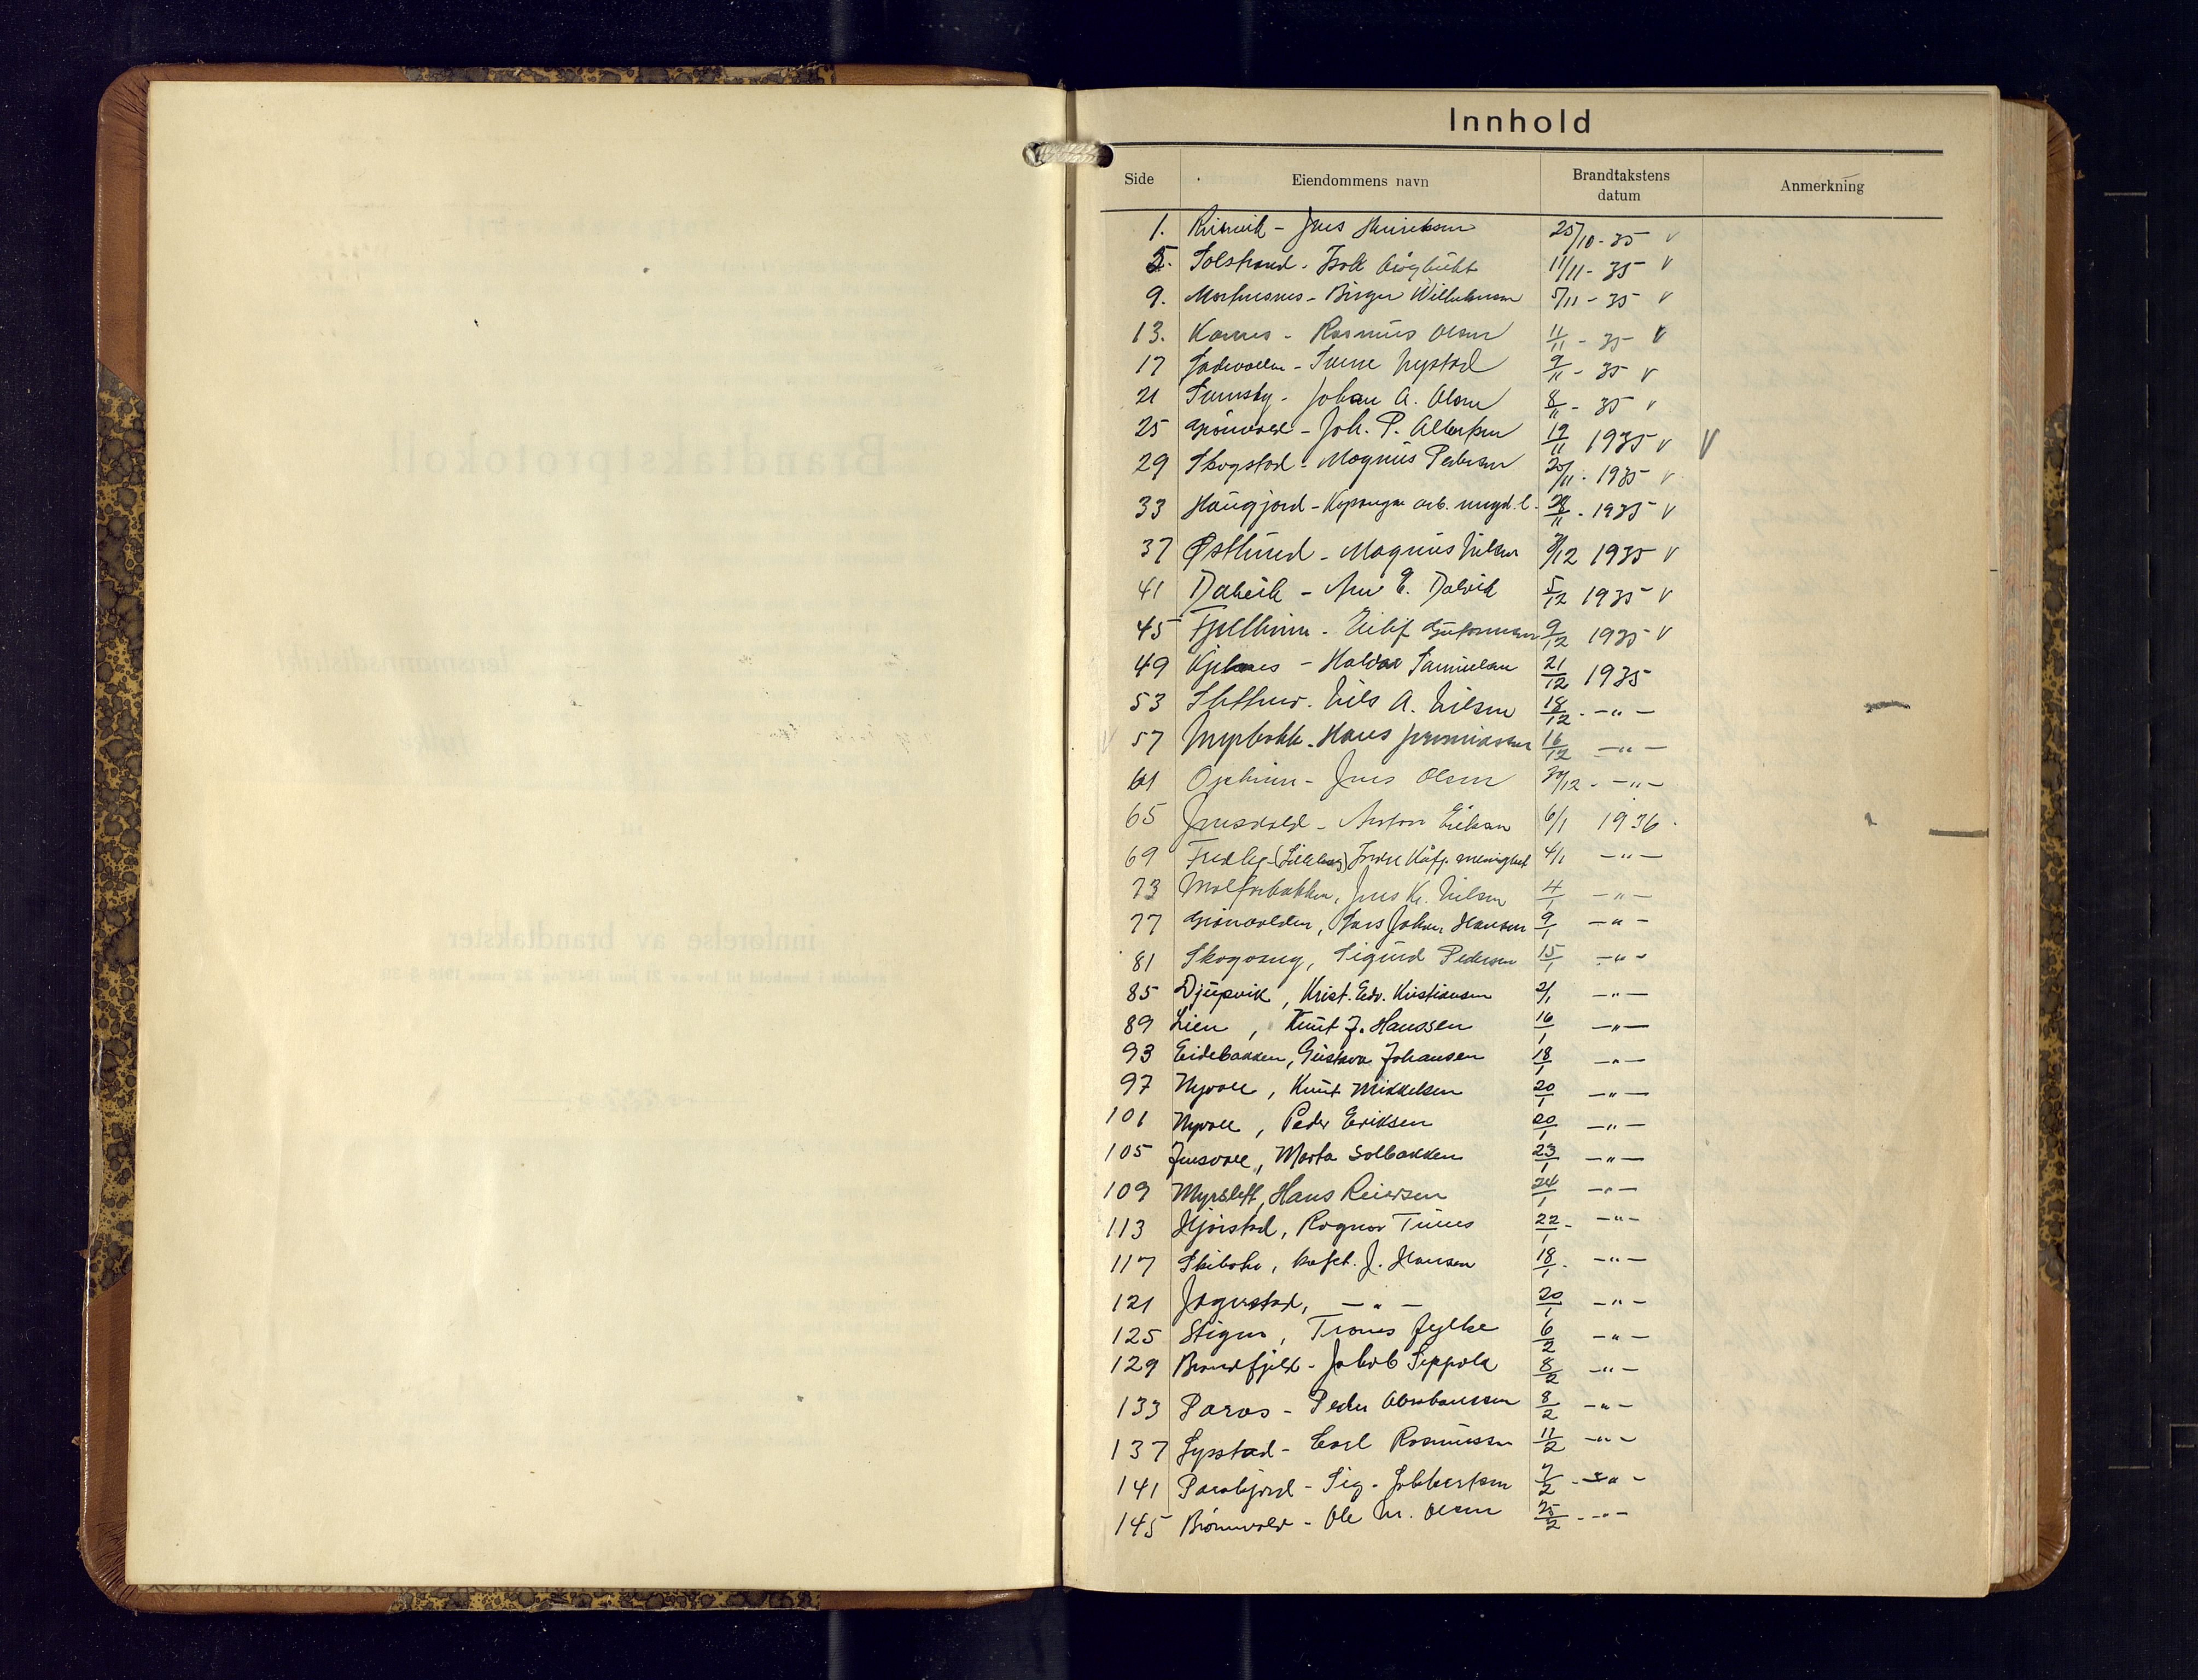 Innhold
Side Eiendommens navn Brandtakstens datum Anmerkning
1. Risvik - Jens Henriksen 25/10-35 v
5. Solstrand - 11/11-35 v
9. - Birger Wilhelmsen 5/11-35 v
13. Karnes - Rasmus Olsen 11/11-35 v
17 - Sverre Nystad 9/11-35 v
21 - Johan A. Olsen 8/11-35 v
25 Grönvold - Joh. P. Albertsen 19/11 1935 v V
29 Skogstad - Magnus Pedersen 20/11. 1935 v
33 Haugfjord - arb. ungd.l. 28/11. 1935 v
37 Østlund - Magnus Nilsen /12 1935 v
41 Dalvik - E. Dalvik 5/12 1935 v
45 Fjellheim - Eilif 9/12 1935 v
49 Kjelnes - Halvar Samuelsen 21/12 1935
53 Nils A. Nilsen 18/12. -"-
v 57 Myrbakk - Hans Jeremiassen 16/12 -"-
61 - Jens Olsen 30/12. -"-
65 Jensvold - Anton Eriksen 6/1 1936.
69 Fredly - Indre Kåfj. menighet 4/1 -"-
73 , Jens K. Nilsen 4/1 -"-
77 Grönvolden, Lars Johan Hansen 9/1 -"-
81 Skogeng, Sigurd Pedersen 15/1 -"-
85 Djupvik, Krist. Edv. Kristiansen 2/1 -"-
89 Lien, Knut J. Hanssen 16/1 -"-
93 Eidebakken, Gustava Johansen 18/1 -"-
97 Nyvoll, Knut Mikkelsen 20/1 -"-
101 Nyvoll, Peder Eriksen 20/1 -"-
105 Jensvoll, Marta Solbakken 23/1 -"-
109 Myrslett, Hans Reiersen 24/1 -"-
113 , Ragnar 22/1. -"-
117 Skibotn, J. Hansen 18/1. -"-
121 Jagerstad, -"- 20/1 -"-
125 Stigen, Troms fylke 6/2 -"-
129 Brandfjeld - Jakob Seppola 8/2 -"-
133 Paras - Peder Abrahamsen 8/2 -"-
137 Lypstad - Carl Rasmussen 11/2 -"-
141 - Sig. 7/2. -"-
145 - Ole M. Olsen 25/2. -"-